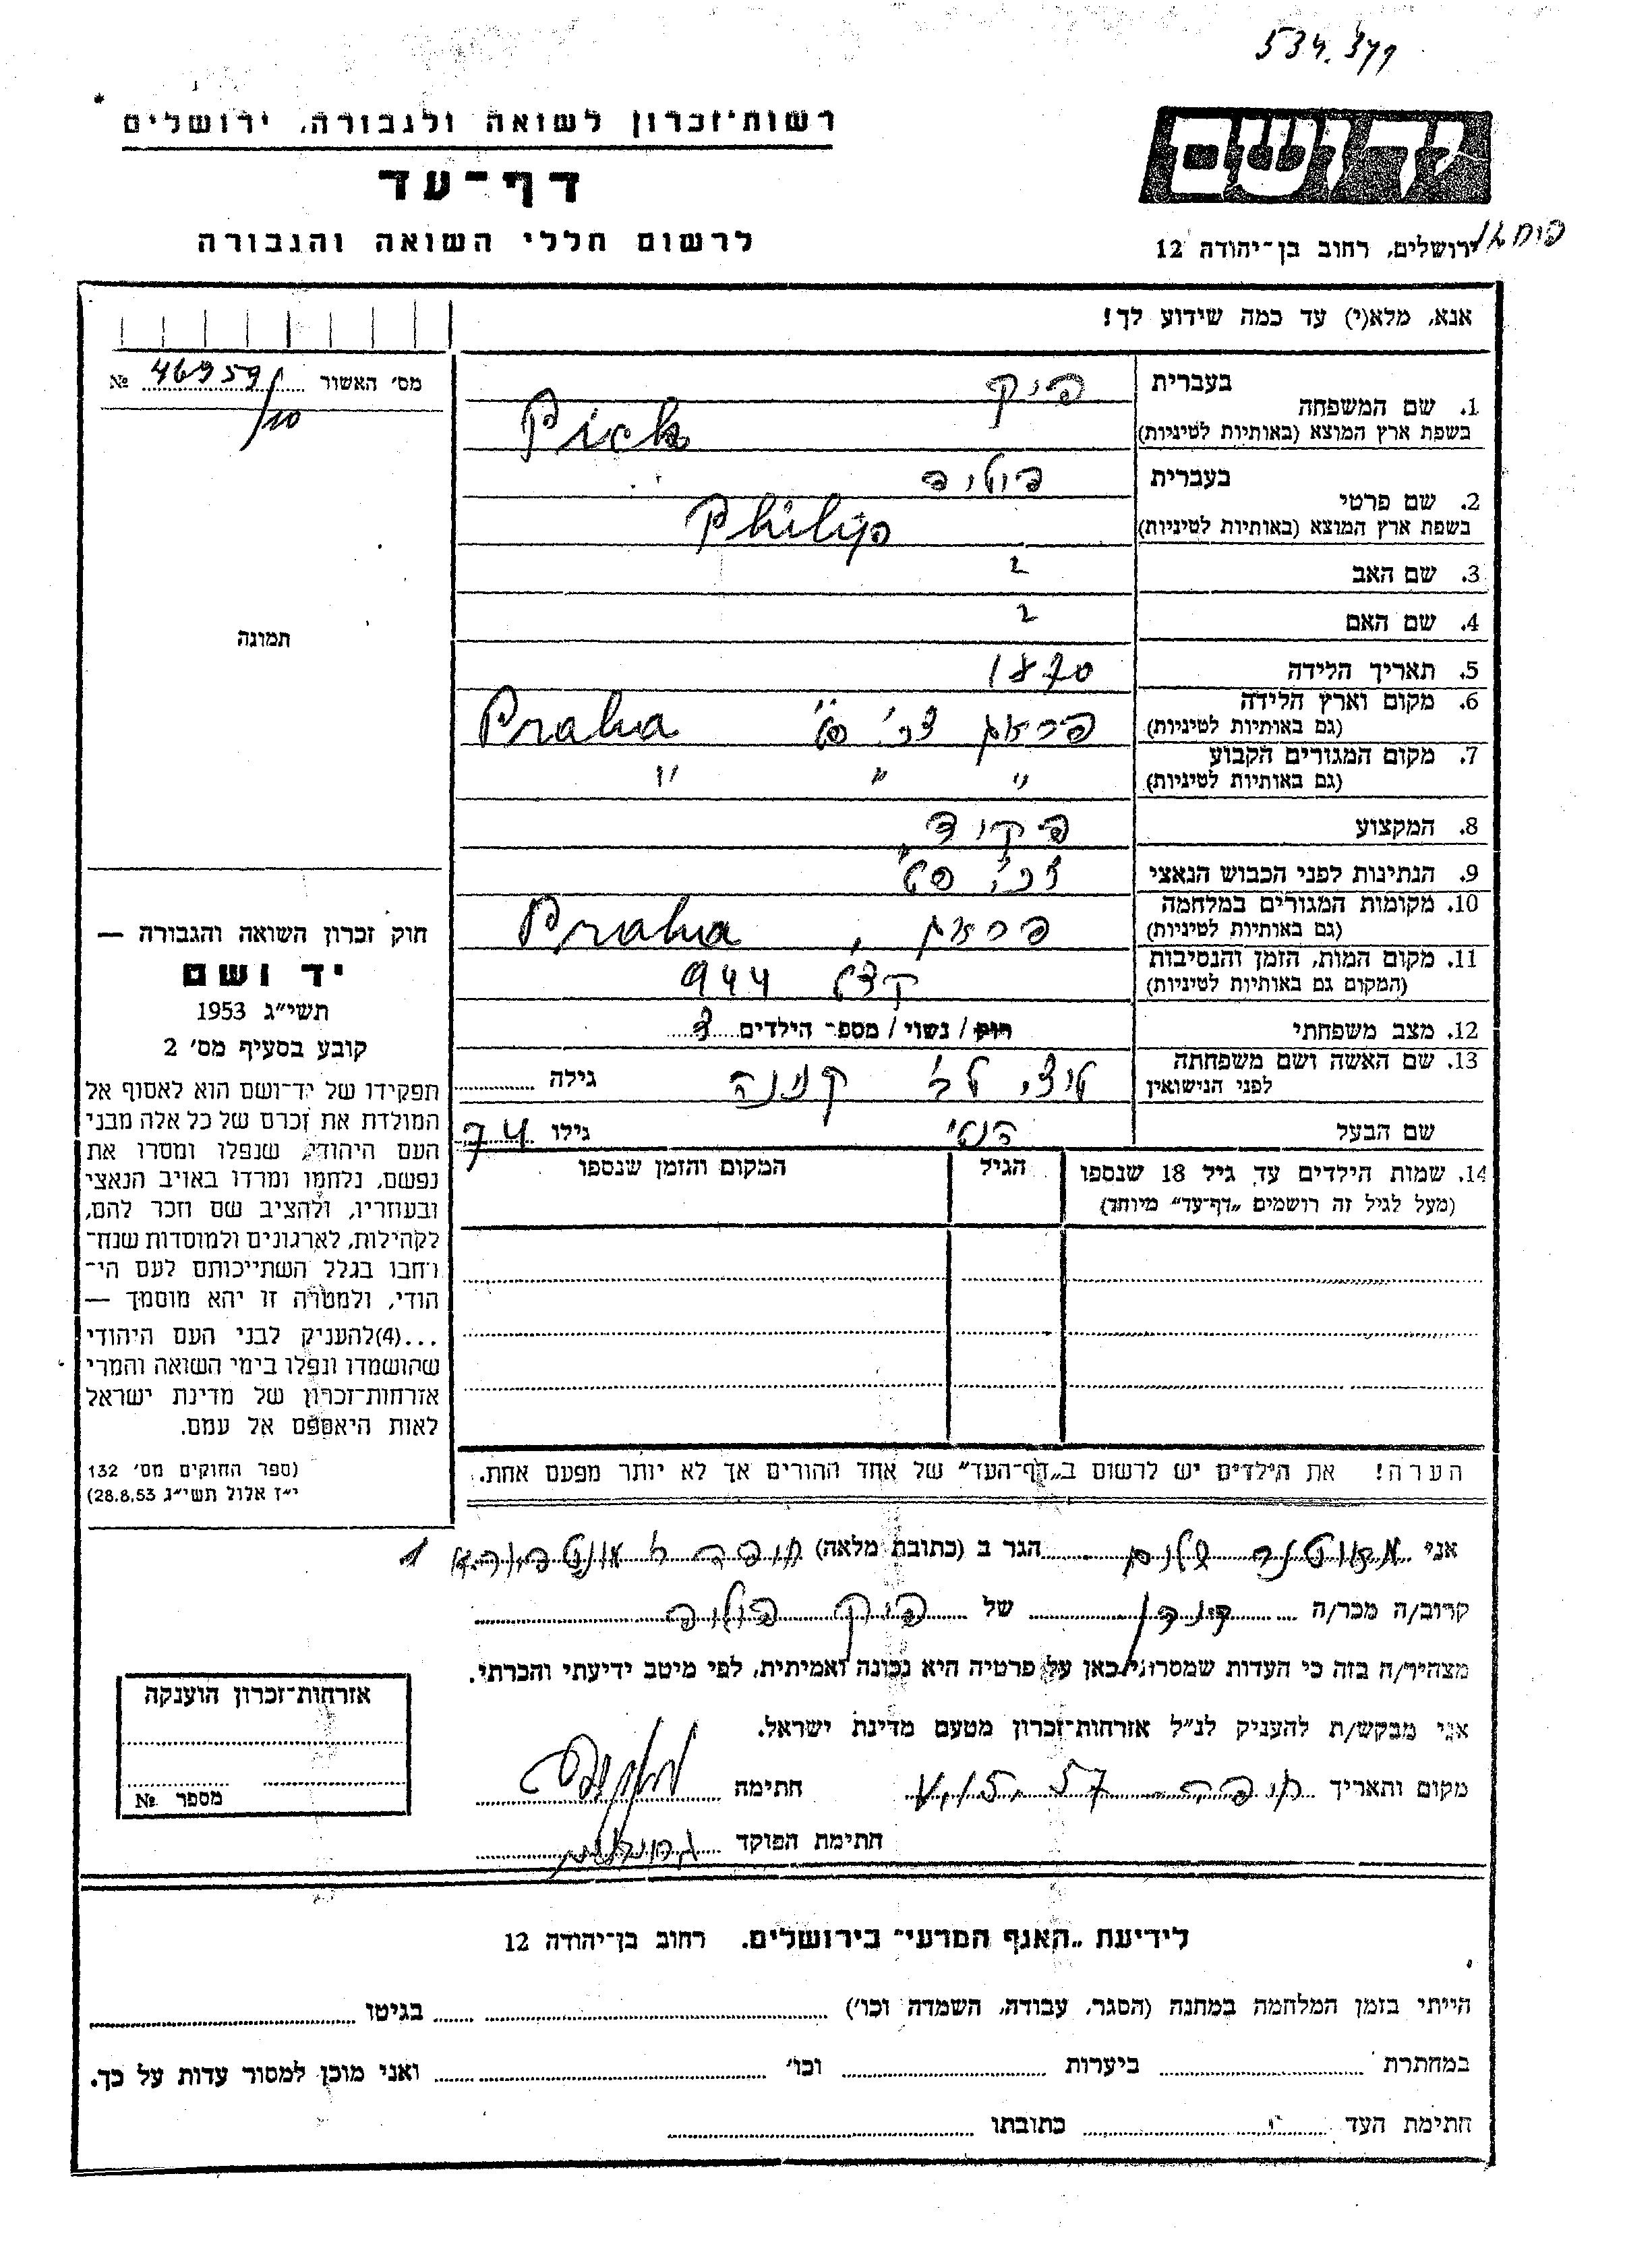 534.349
רשות־זכרון לשואה ולגבורה, ירושלים
יד ושם
דף־עד
לרשום חללי השואה והגבורה
ירושלים, רחוב בן־יהודה 12
אנא, מלא(י) עד כמה שידוע לך!
מס׳ האשור 46959/ №
10
1. שם המשפחה בעברית פיק
בשפת ארץ המוצא (באותיות לטיניות) Pick
2. שם פרטי בעברית פיליפ
בשפת ארץ המוצא (באותיות לטיניות) Philip
3. שם האב
4. שם האם
תמונה
5. תאריך הלידה 1870
6. מקום וארץ הלידה
(גם באותיות לטיניות) פראג Praha
7. מקום המגורים הקבוע
(גם באותיות לטיניות) " " "
8. המקצוע פקיד
9. הנתינות לפני הכבוש הנאצי
10. מקומות המגורים במלחמה
(גם באותיות לטיניות) פראג, Praha
11. מקום המות, הזמן והנסיבות
(המקום גם באותיות לטיניות) 944
12. מצב משפחתי רווק / נשוי / מספר הילדים
13. שם האשה ושם משפחתה
לפני הנישואין גילה
שם הבעל גילו 74
14. שמות הילדים עד גיל 18 שנספו הגיל המקום והזמן שנספו
(מעל לגיל זה רושמים „דף־עד״ מיוחד)
הערה! את הילדים יש לרשום ב„דף־העד״ של אחד ההורים אך לא יותר מפעם אחת.
חוק זכרון השואה והגבורה —
יד ושם
תשי״ג 1953
קובע בסעיף מס׳ 2
תפקידו של יד־ושם הוא לאסוף אל
המולדת את זכרם של כל אלה מבני
העם היהודי, שנפלו ומסרו את
נפשם, נלחמו ומרדו באויב הנאצי
ובעוזריו, ולהציב שם וזכר להם,
לקהילות, לארגונים ולמוסדות שנח־
רבו בגלל השתייכותם לעם הי־
הודי, ולמטרה זו יהא מוסמך —
...(4)להעניק לבני העם היהודי
שהושמדו ונפלו בימי השואה והמרי
אזרחות־זכרון של מדינת ישראל
לאות היאספם אל עמם.
(ספר החוקים מס׳ 132
י״ז אלול תשי״ג 28.8.53)
אני שלום הגר ב (כתובת מלאה) חיפה 1
קרוב/ה מכר/ה של פיק פיליפ
מצהיר/ה בזה כי העדות שמסרתי כאן על פרטיה היא נכונה ואמיתית, לפי מיטב ידיעתי והכרתי.
אני מבקש/ת להעניק לנ״ל אזרחות־זכרון מטעם מדינת ישראל.
מקום ותאריך חיפה חתימה
חתימת הפוקד
אזרחות־זכרון הוענקה
מספר №
לידיעת „האגף המדעי״ בירושלים. רחוב בן־יהודה 12
הייתי בזמן המלחמה במחנה (הסגר, עבודה, השמדה וכו׳) בגיטו
במחתרת ביערות וכו׳ ואני מוכן למסור עדות על כך.
חתימת העד כתובתו